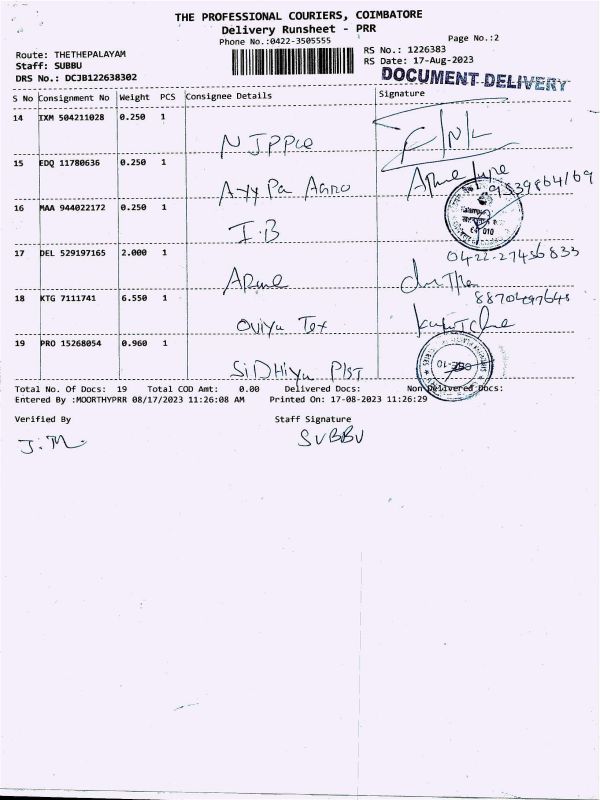 THE PROFESSIONAL COURIERS, COIMBATORE
Delivery Runsheet - PRR
Phone No.:0422-3505555 Page No.:2
Route: THETHEPALAYAM RS No.: 1226383
Staff: SUBBU RS Date: 17-Aug-2023
DRS No.: DCJB122638302 DOCUMENT DELIVERY
S No Consignment No Weight PCS Consignee Details Signature
14 IXM 504211028 0.250 1
NJPPLe F/N/L
15 EDQ 11780636 0.250 1
Ayy Pa Agro 9539864169
16 MAA 944022172 0.250 1
I.B
17 DEL 529197165 2.000 1 0422-27456833
18 KTG 7111741 6.550 1 8870497645
Oviya Tex
19 PRO 15268054 0.960 1
SiDHiyu PlST
Total No. Of Docs: 19 Total COD Amt: 0.00 Delivered Docs: Non Delivered Docs:
Entered By :MOORTHYPRR 08/17/2023 11:26:08 AM Printed On: 17-08-2023 11:26:29
Verified By Staff Signature
J.M. SUBBU